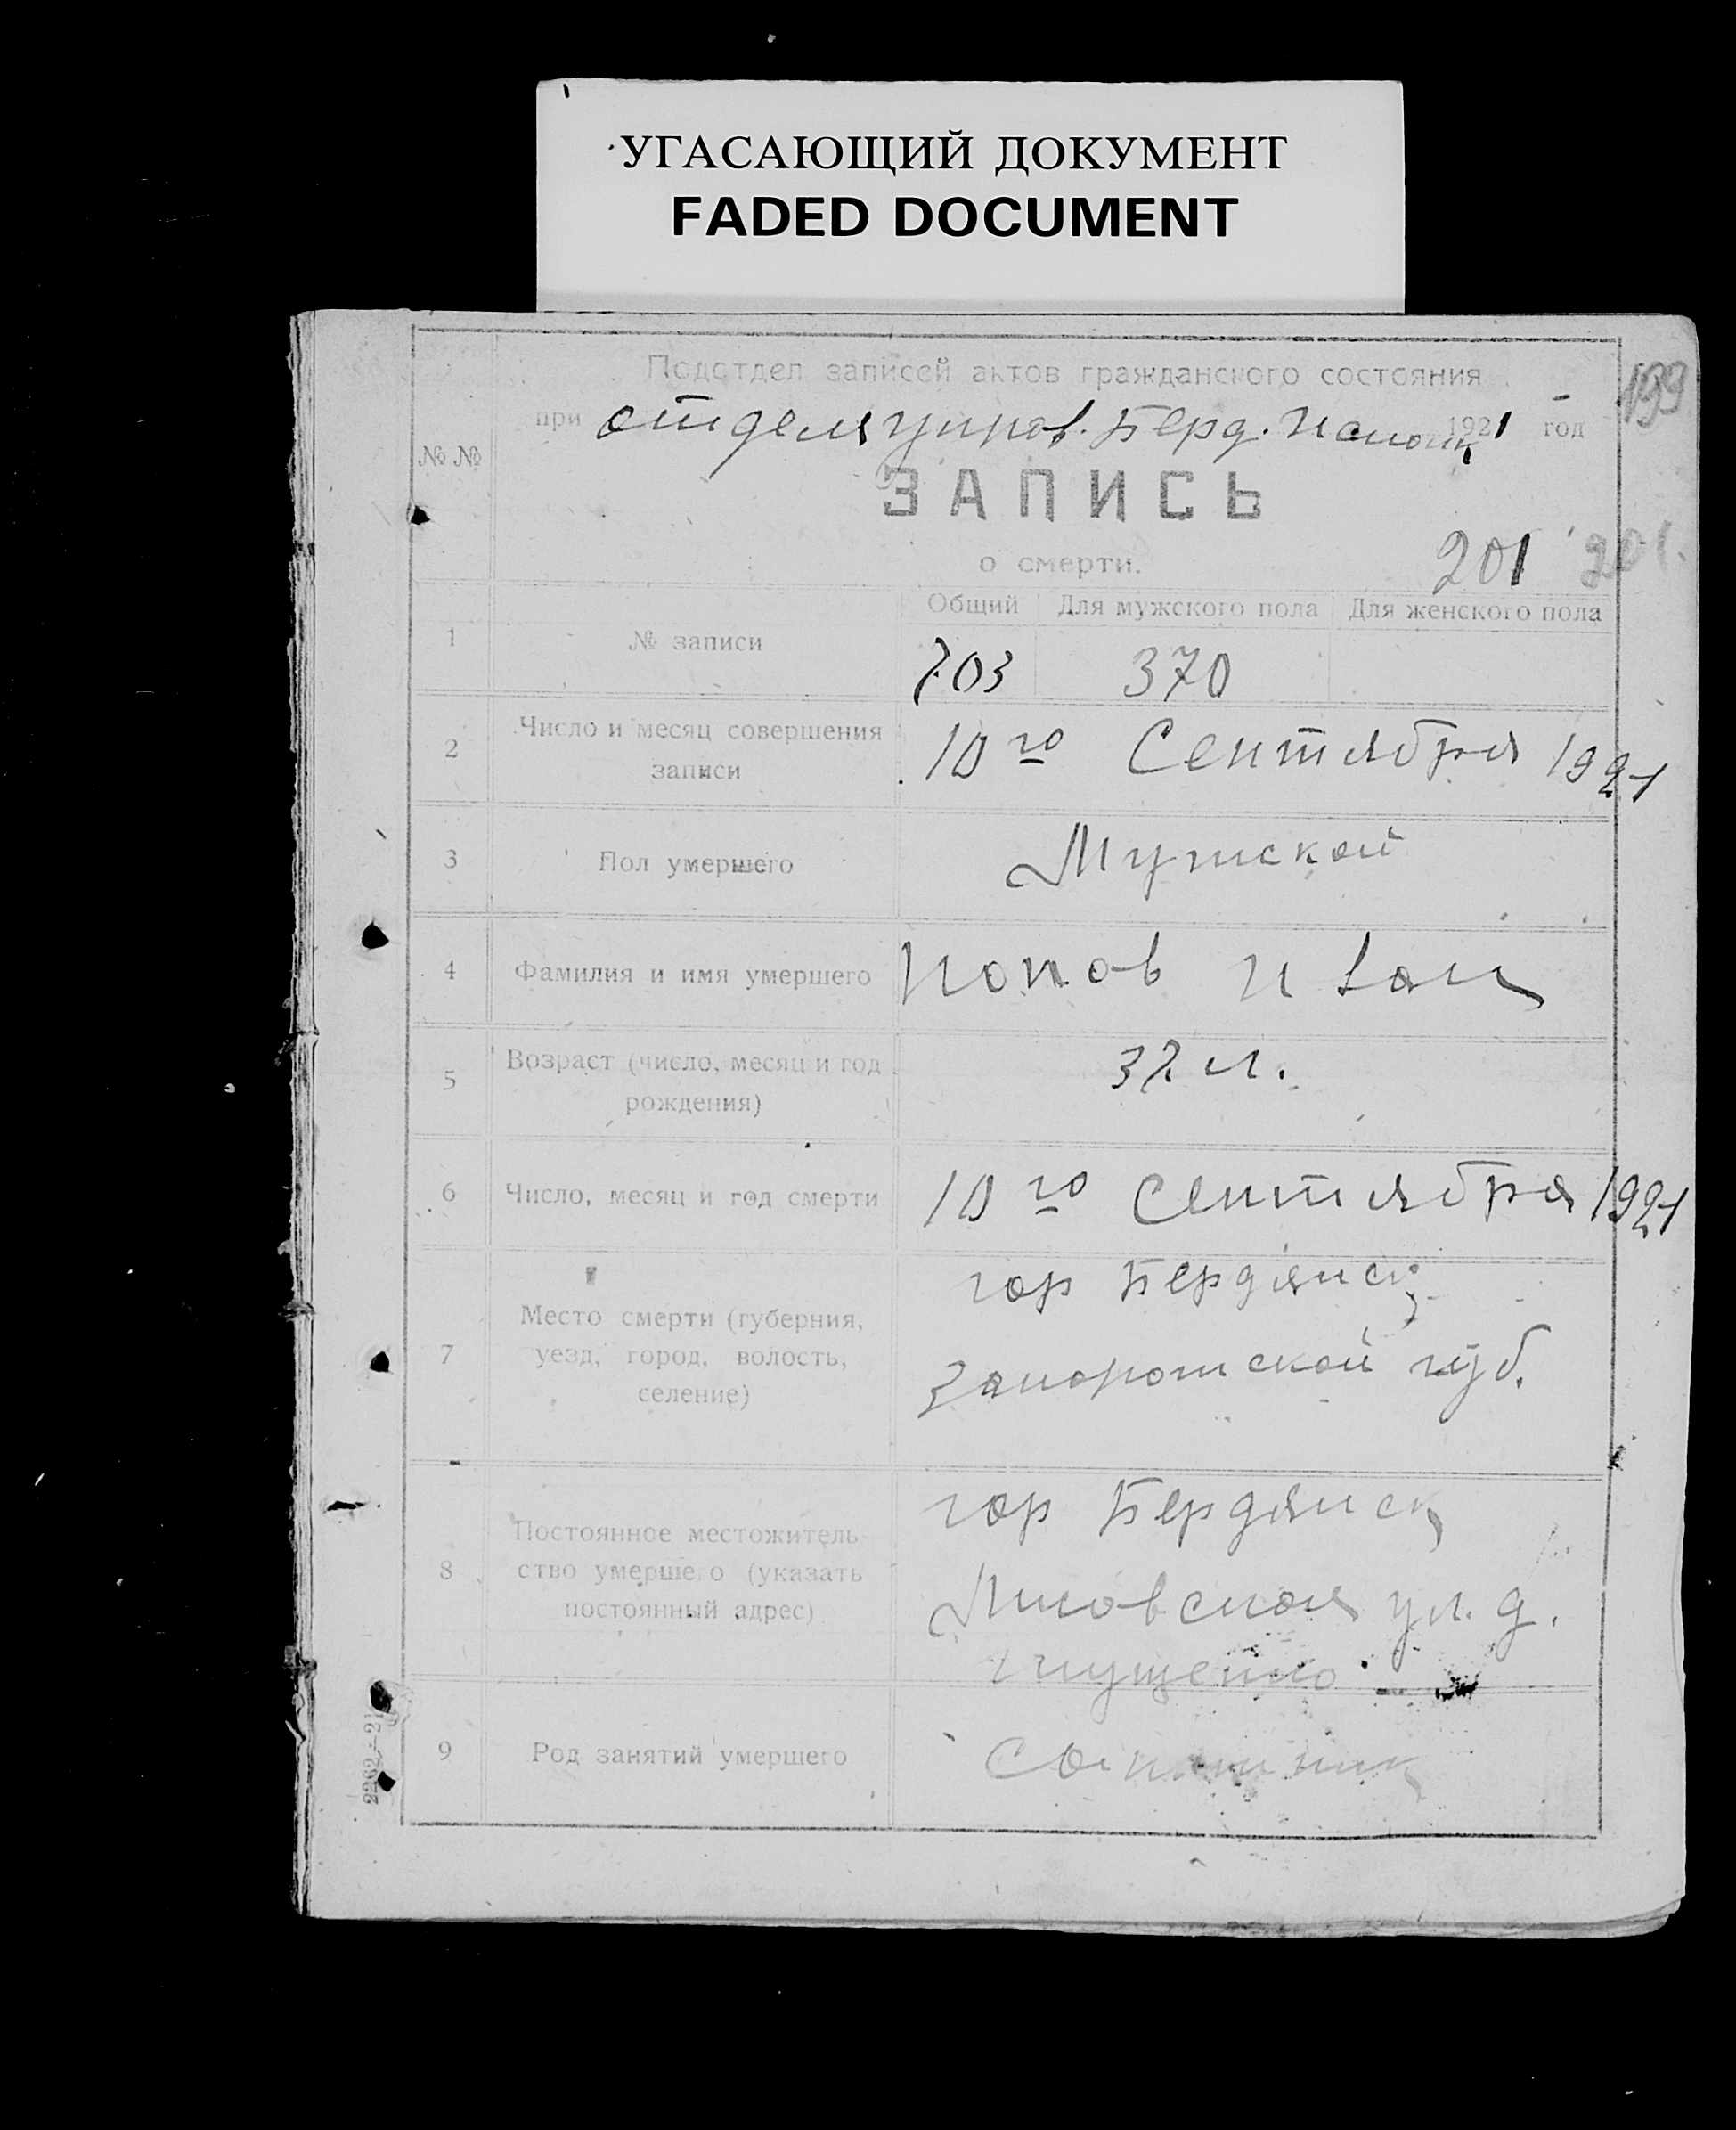 УГАСАЮЩИЙ ДОКУМЕНТ
FADED DOCUMENT
199
Подотдел записей актов гражданского состояния
при отдела управ. Берд. Исполк 1921 год
№№
ЗАПИСЬ
о смерти.
201 201.
Общий Для мужского пола Для женского пола
1 № записи 703 370
2 Число и месяц совершения
записи
10го Сентября 1921
3 Пол умершего Мужской
4 Фамилия и имя умершего Попов Иван
5 Возраст (число, месяц и год
рождения)
32 л.
6 Число, месяц и год смерти 10го Сентября 1921
7 Место смерти (губерния,
уезд, город, волость,
селение)
гор Бердянск
Запорожской губ.
8 Постоянное местожитель-
ство умершего (указать
постоянный адрес)
гор Бердянск
ул. д.
9 Род занятий умершего
2262—21